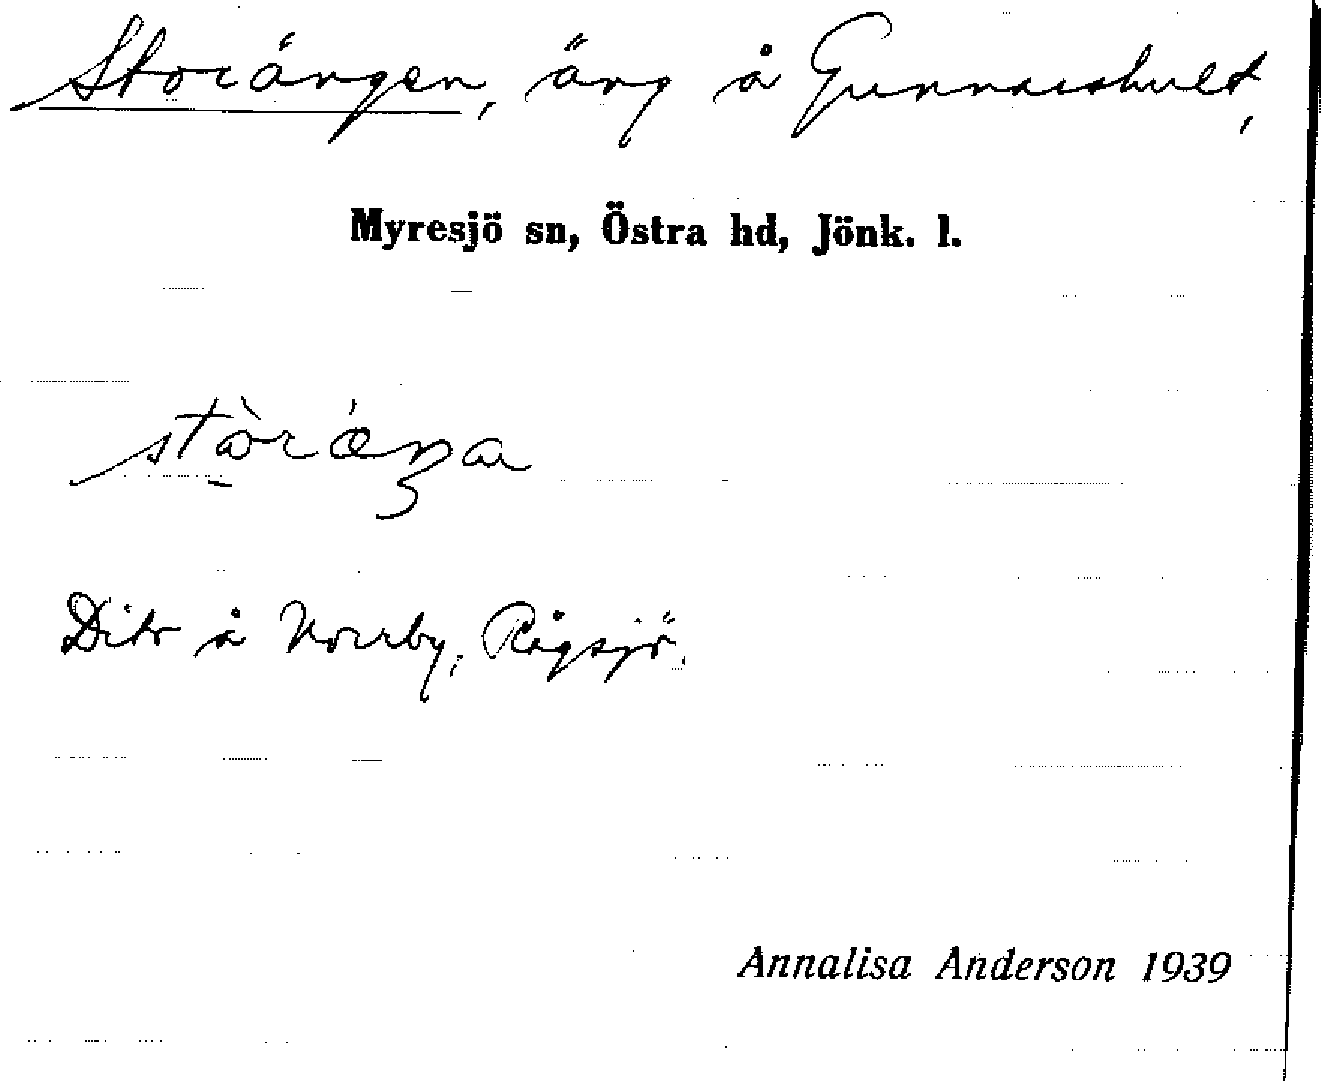 Storängen, äng å Gunnarshult,
Myresjö sn, Östra hd, Jönk. l.
stòrǽŋa
Dito å Norrby, Rågsjö.
Annalisa Anderson 1939